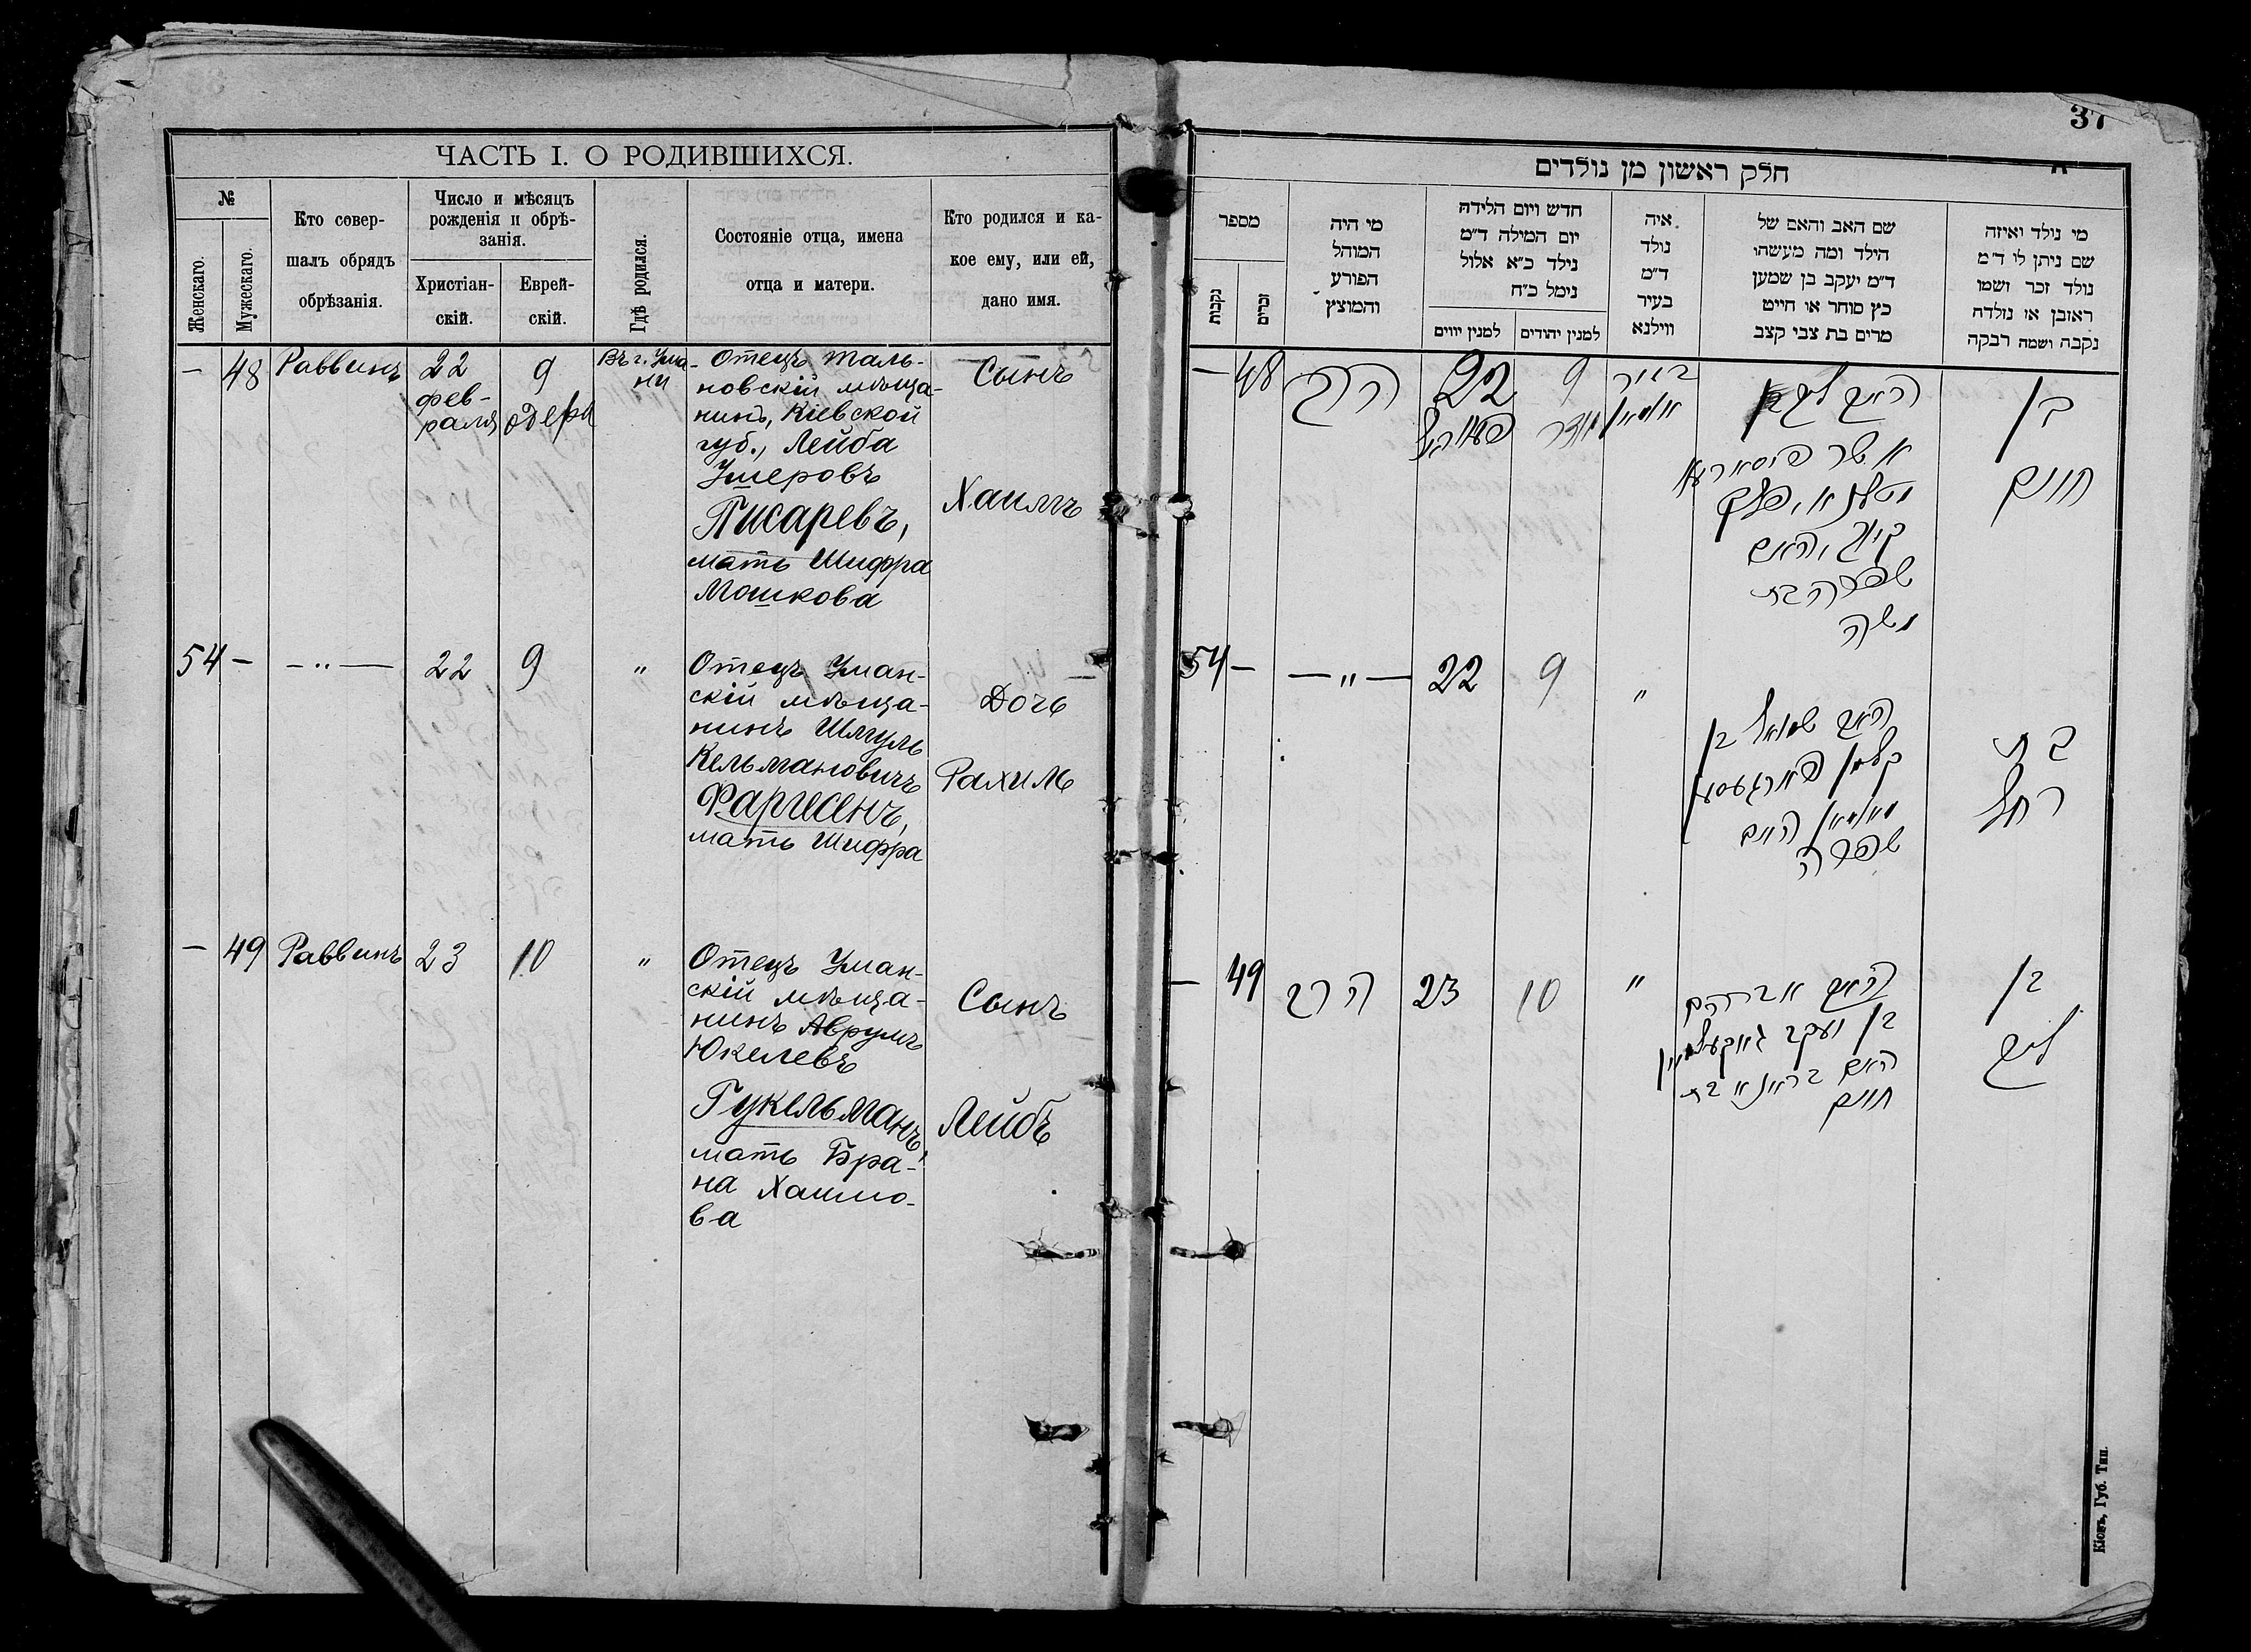 37
ЧАСТЬ I. О РОДИВШИХСЯ.
№
Женскаго.
Мужескаго.
Кто совер-
шалъ обрядъ
обрѣзанія.
Число и мѣсяцъ
рожденія и обрѣ-
занія.
Христіан-
скій.
Еврей-
скій.
Гдѣ родился.
Состояніе отца, имена
отца и матери.
Кто родился и ка-
кое ему, или ей,
дано имя.
— 48 Раввинъ
22
фев-
раля
9
Адера
Въ г. Ума-
ни
Отецъ Таль-
новскій мѣща-
нинъ, Кіевской
губ., Лейба
Ушеровъ
Писаревъ,
мать Шифра
Мошкова
Сынъ
Хаимъ
54 — — " — 22 9 "
Отецъ Уман-
скій мѣща-
нинъ Шмуль
Кельмановичъ
мать Шифра
Дочь
Рахиль
— 49 Раввинъ 23 10 "
Отецъ Уман-
скій мѣща-
нинъ Аврумъ
Юкелевъ
Гукельманъ,
мать Бра-
на Хаимо-
ва
Сынъ
Лейбъ
חלק ראשון מן נולדים
מספר
נקבות
זכרים
מי היה
המוהל
הפורע
והמוצץ
חדש ויום הלידה
יום המילה ד"מ
נילד כ"א אלול
נימל כ"ח
למנין יווים
למנין יהודים
איה
נולד
ד"מ
בעיר
ווילנא
שם האב והאם של
הילד ומה מעשהו
ד"מ יעקב בן שמען
כץ סוחר או חייט
מרים בת צבי קצב
מי נולד ואיזה
שם ניתן לו ד"מ
נולד זכר ושמו
ראובן או נולדה
נקבה ושמה רבקה
— 48 הרב
22
פעווראל
9
אדר
בעיר
אומאן
האב ליב בן
אשר פיסארעוו
מטאלנא, פלך
קיוב, האם
שפרה בת
משה
בן
חיים
54 — — " — 22 9 "
האב שמואל בן
קלמן
מאומאן האם
שפרה
בת
רחל
— 49 הרב 23 10 "
האב אברהם
בן יעקב גוקעלמאן
האם בראנא בת
חיים
בן
ליב
Кіевъ, Губ. Тип.